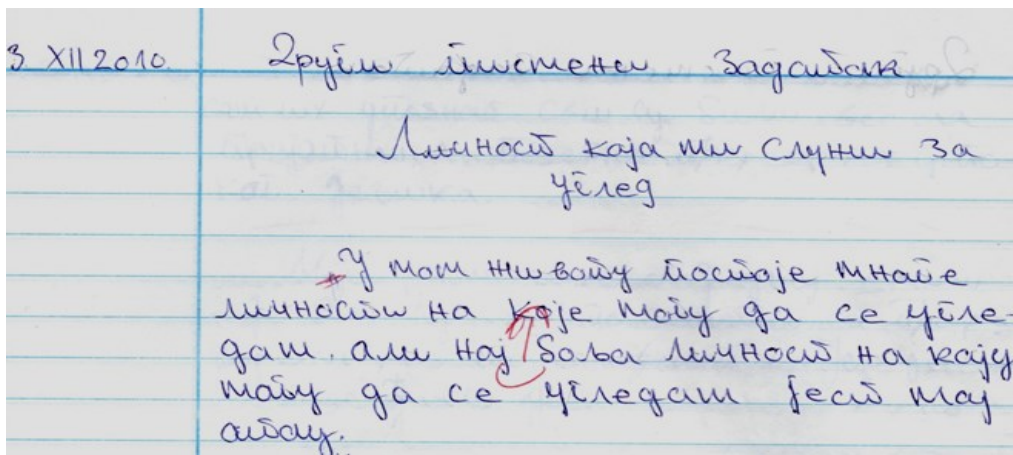 3 XII 2010. Други писмени задатак
Личност која ми служи за
углед
У мом животу постоје многе
личности на које могу да се угле-
дам. али нај боља личност на коју
могу да се угледам јест мој
отац.